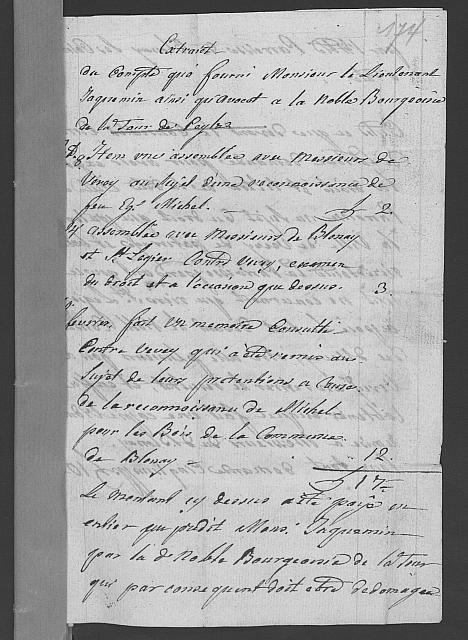 174
Extrait
du Compte qu'a fourni Monsieur le Lieutenant
Jaquemin ainsi qu'avocat a la Noble Bourgeoisie
de la Tour de Peylz
Item une assemblee avec Messieurs de
Vevey au Sujet d'une reconnoissance de
feu Eg. Michel. - 2.
assemblée avec Messieurs de Blonay
et St Legier Contre Vevey, examen
du droit et a l'occasion que dessus. 3.
fevrier, fait un memoire Consulté
Contre Vevey qui a été remis au
Sujet de leurs pretentions a Cause
de la reconnoissance de Michel
pour les Bois de la Commune
de Blonay - 12.
17-
Le montant cy dessus a été payé en
entier au predit Mons. Jaquemin
par la d. Noble Bourgeoisie de la Tour
qui par consequent doit etre dedomagée